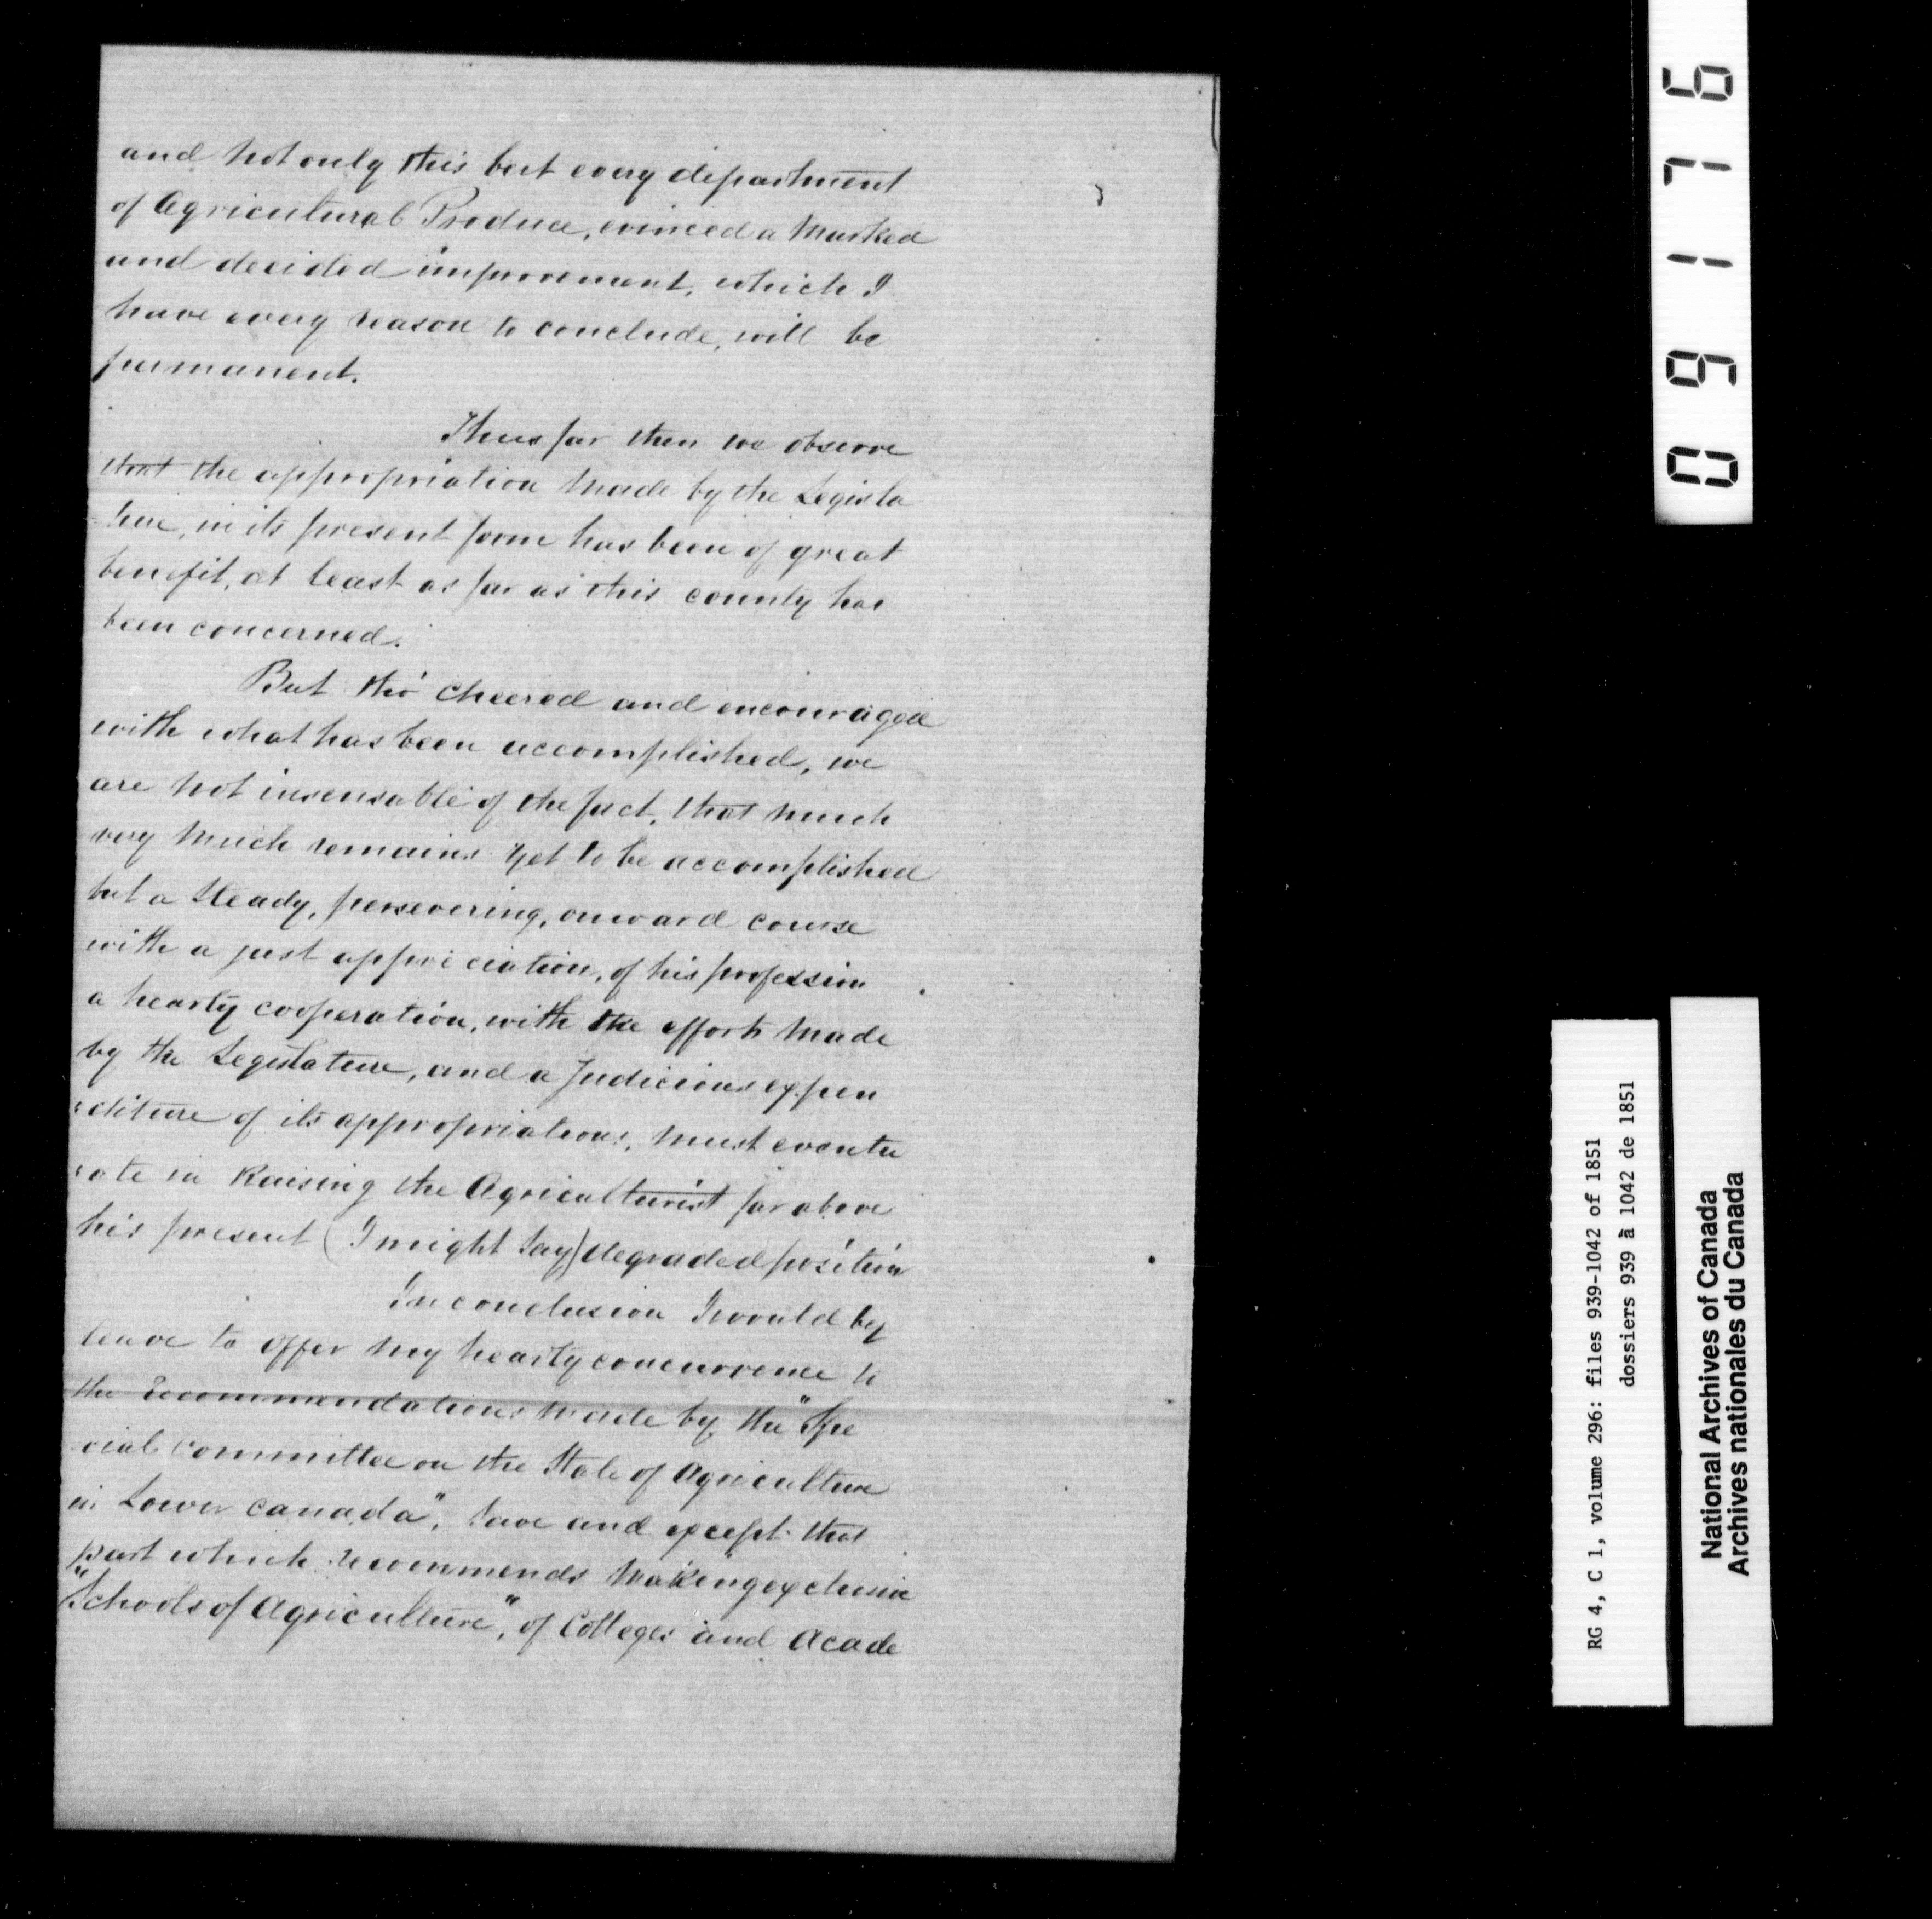 and not only this but every department
of Agricultural Produce, evinced a Marked
and decided improvement, which I
have every reason to conclude, will be
permanent.
Thus far then we observe
that the appropriation made by the Legisla
=ture, in its present form has been of great
benefit, at least as far as this county has
been concerned.
But tho' cheered and encouraged
with what has been accomplished, we
are not insensable of the fact, that much
very much remains yet to be accomplished
but a steady, persevering, onward course
with a just appreciation, of his profession
a hearty cooperation, with the efforts made
by the Legislature, and a Judicious expen
:diture of its appropriations, must eventu
:ate in Raising the Agriculturist far above
his present (I might say) degraded position
In conclusion I would beg
leave to offer my hearty concurrence to
the Recommendations made by the "Spe
cial Committee on the State of Agriculture
in Lower Canada", save and except that
part which recommends making exclusive
"Schools of Agriculture", of Colleges and Acade
09176
RG 4, C 1, volume 296: files 939-1042 of 1851
dossiers 939 à 1042 de 1851
National Archives of Canada
Archives nationales du Canada